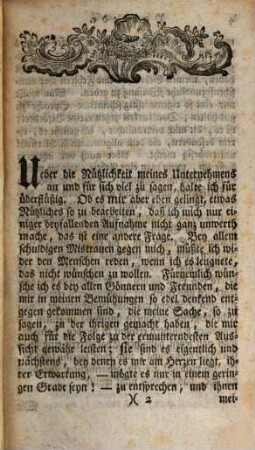 Ueber die Nützlichkeit meines Unternehmens
an und für sich viel zu sagen, halte ich für
überflüßig. Ob es mir aber eben gelingt, etwas
Nützliches so zu bearbeiten, daß ich mich nur ei-
niger beyfallenden Aufnahme nicht ganz unwerth
mache, das ist eine andere Frage. Bey allem
schuldigen Mistrauen gegen mich, müßte ich wi-
der den Menschen reden, wenn ich es leugnete,
das nicht wünschen zu wollen. Fürnemlich wün-
sche ich es bey allen Gönnern und Freunden, die
mir in meinen Bemühungen so edel denkend ent-
gegen gekommen sind, die meine Sache, so zu
sagen, zu der ihrigen gemacht haben, die mir
auch für die Folge zu der ermunterndesten Aus-
sicht gewähr leisten; sie sind es eigentlich und
nächstens, bey denen es mir am Herzen liegt, ih-
rer Erwartung, — mögte es nur in einem gerin-
gen Grade seyn! — zu entsprechen, und ihnen
)( 2 mei-